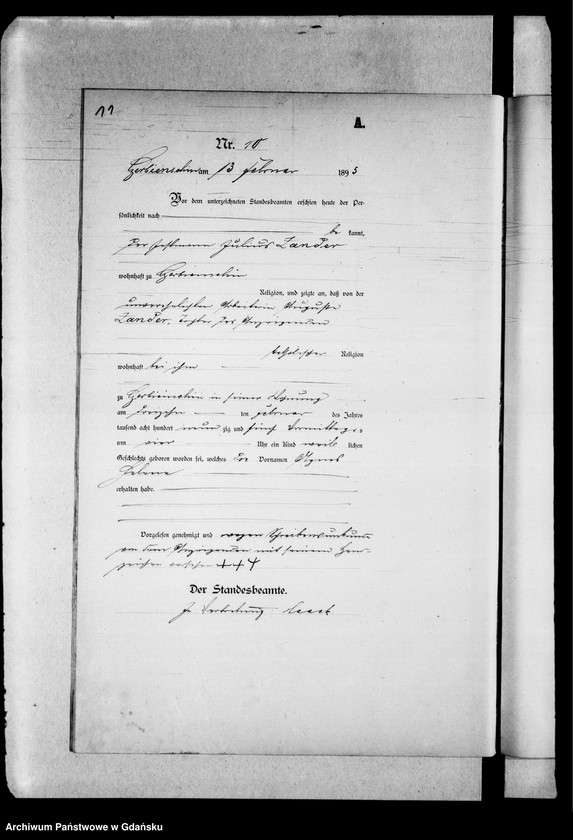 11
A.
Nr. 10
am 13 Februar 1895
Vor dem unterzeichneten Standesbeamten erschien heute der Per-
sönlichkeit nach
be kannt,
der Julius Zander
wohnhaft zu
Religion, und zeigte an, daß von der
unverehelichten Arbeiterin Auguste
Zander, Tochter des Anzeigenden
katholischer Religion
wohnhaft bei ihm
zu in seiner Wohnung
am dreizehn ten Februar des Jahres
tausend acht hundert neun zig und fünf Vormittags
um vier Uhr ein Kind weib lichen
Geschlechts geboren worden sei, welches die Vornamen Agnes
Helene
erhalten habe.
Vorgelesen genehmigt und wegen Schreibensunkunde
von dem Anzeigenden mit seinem Hand-
zeichen versehen +++
Der Standesbeamte.
In Vertretung
Archiwum Państwowe w Gdańsku